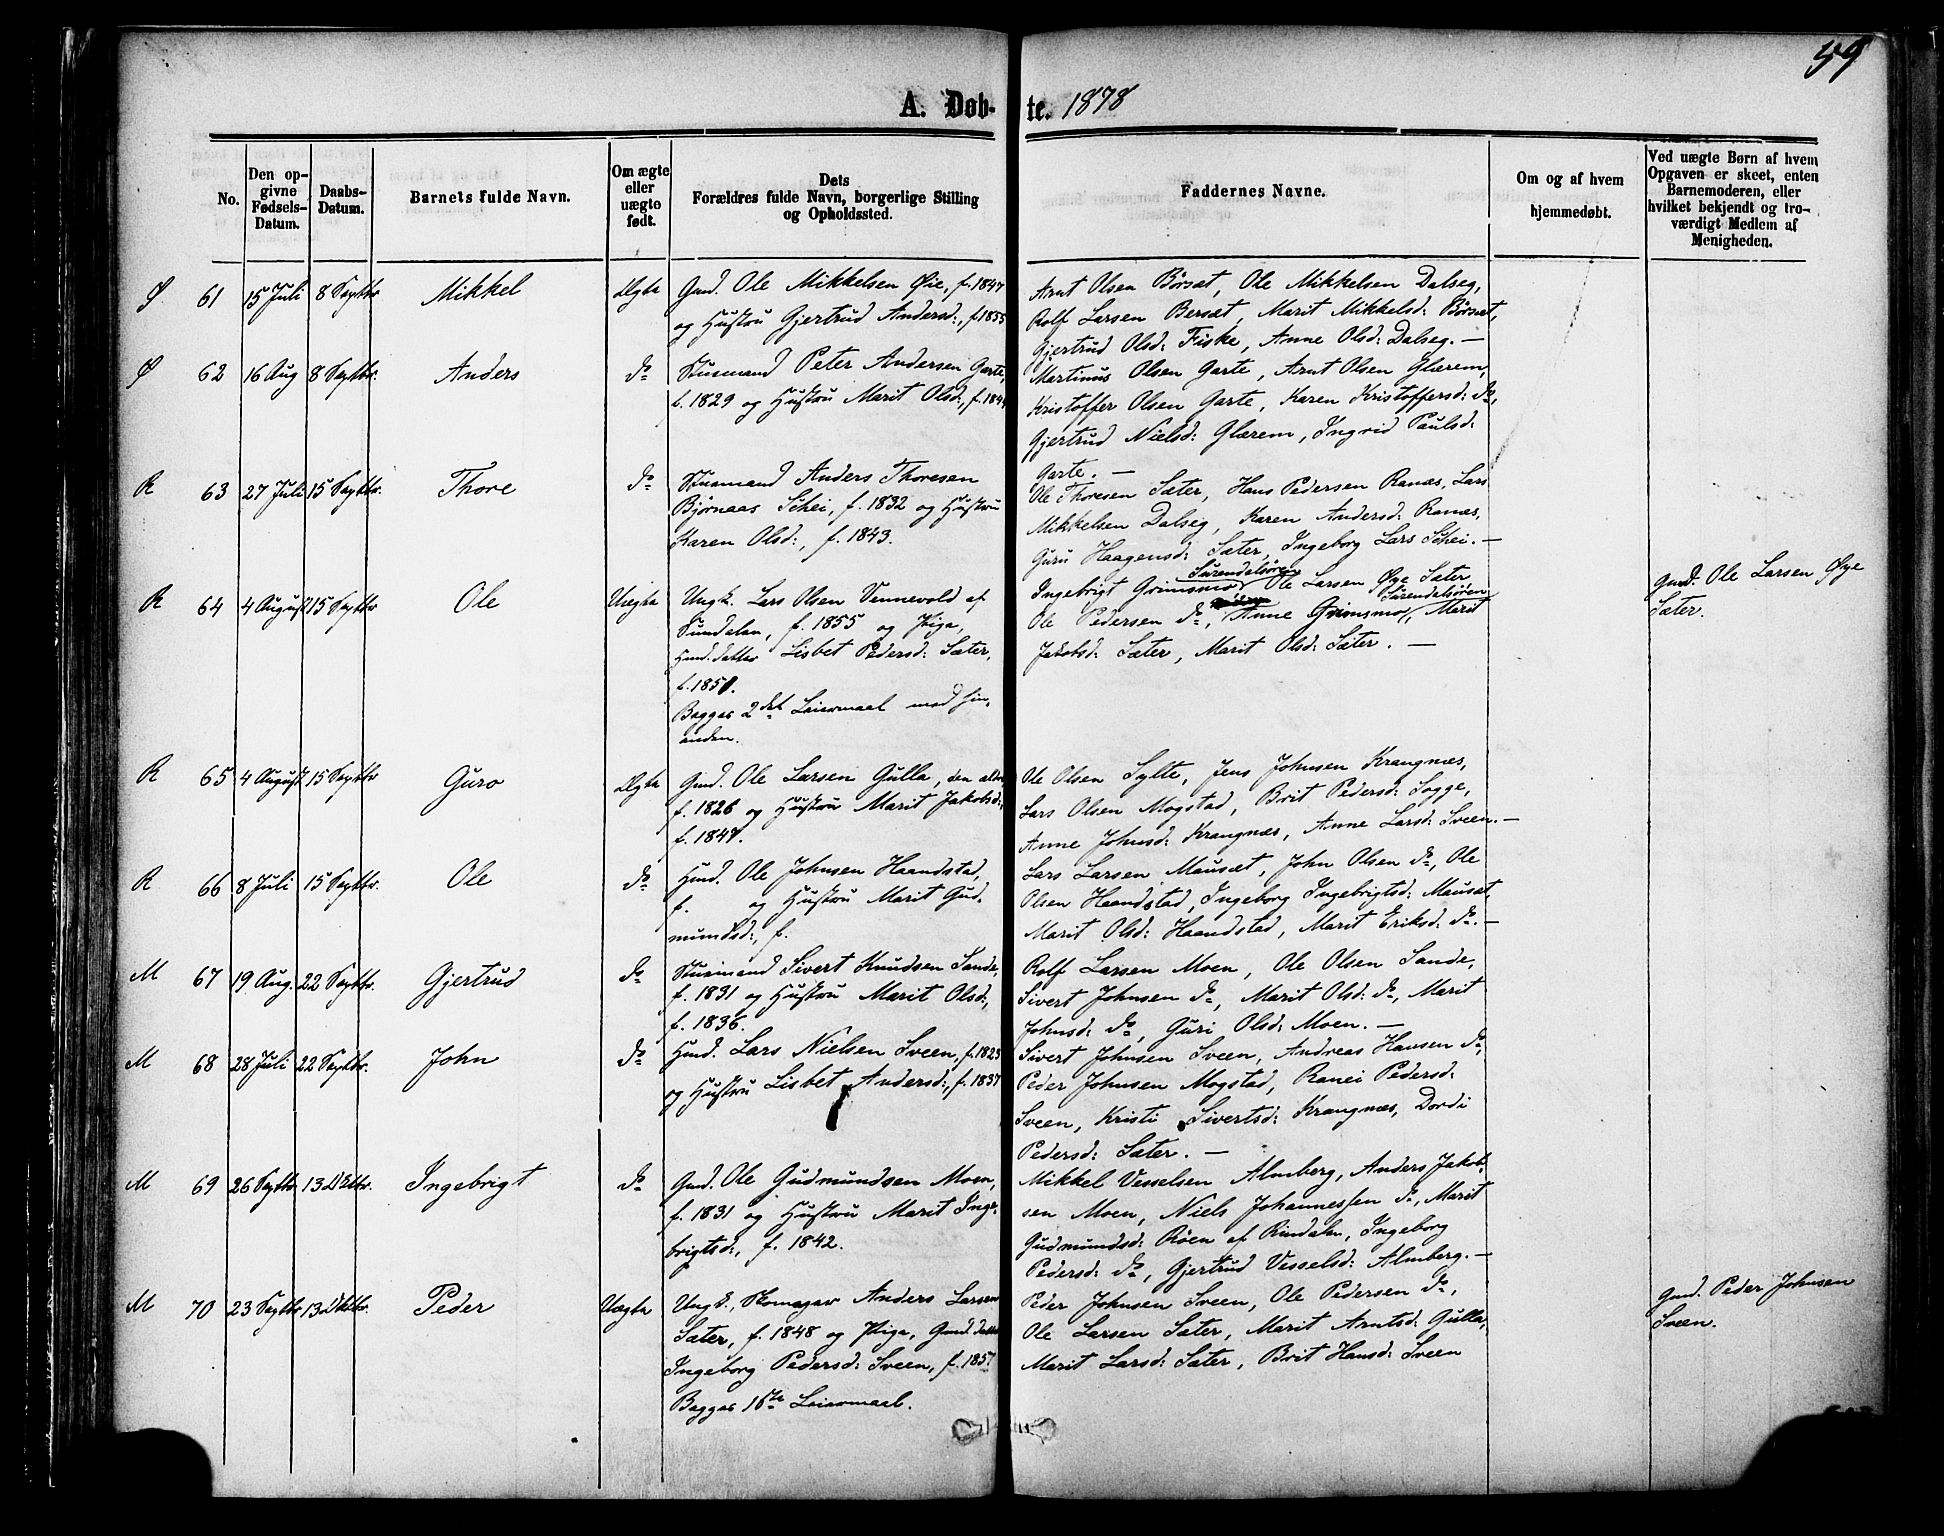 59
A. Døb- te. 1878
No.
Den op-
givne
Fødsels-
Datum.
Daabs-
Datum.
Barnets fulde Navn.
Om ægte
eller
uægte
født.
Dets
Forældres fulde Navn, borgerlige Stilling
og Opholdssted.
Faddernes Navne.
Om og af hvem
hjemmedøbt.
Ved uægte Børn af hvem
Opgaven er skeet, enten
Barnemoderen, eller
hvilket bekjendt og tro-
værdigt Medlem af
Menigheden.
Ø 61 15 Juli 8 Septbr Mikkel Ægte
Gmd. Ole Mikkelsen Øie, f. 1847
og Hustru Gjertrud Andersd:, f. 1855
Arnt Olsen Børsæt, Ole Mikkelsen Dalseg,
Rolf Larsen Bersæt, Marit Mikkelsd: Børsæt,
Gjertrud Olsd: Fiske, Anne Olsd: Dalseg. —
Ø 62 16 Aug 8 Septbr. Anders do
Husmand Peter Andersen Garte,
f. 1829 og Hustru Marit Olsd:, f. 1844
Martinus Olsen Garte, Arnt Olsen Glærem,
Kristoffer Olsen Garte, Karen Kristoffersd: do,
Gjertrud Nielsd: Glærem, Ingrid Paulsd:
Garte. —
R 63 27 Juli 15 Septbr. Thore do
Husmand Anders Thoresen
Bjørnaas Schei, f. 1832 og Hustru
Karen Olsd:, f. 1843.
Ole Thoresen Sæter, Hans Pedersen Ranæs, Lars
Mikkelsen Dalseg, Karen Andersd: Ranæs,
Guru Haagensd: Sæter, Ingeborg Lars Schei. —
R 64 4 August 15 Septbr Ole Uægte
Ungk. Lars Olsen Vennevold af
Sundalen, f. 1855 og Pige,
Gmd. datter Lisbet Pedersd: Sæter,
f. 1851.
Begges 2det Leiermaal med hin-
anden.
Surendalsøren
Ingebrigt Grimsmo, Ole Larsen Øye Sæter
Surendalsøren
Ole Pedersen do, Anne Grimsmo, Marit
Jakobsd: Sæter, Marit Olsd: Sæter. —
Gmd. Ole Larsen Øye
Sæter.
R 65 4 August 15 Septbr Guro Ægte
Gmd. Ole Larsen Gulla, den ældre
f. 1826 og Hustru Marit Jakobsd:,
f. 1847.
Ole Olsen Sylte, Jens Johnsen Krangnæs,
Lars Olsen Mogstad, Brit Pedersd: Sogge,
Anne Johnsd: Krangnæs, Anne Larsd: Sveen. —
R 66 8 Juli 15 Septbr. Ole do
Gmd. Ole Johnsen Haandstad,
f. og Hustru Marit Gud-
mundsd:, f.
Lars Larsen Mausæt, John Olsen do, Ole
Olsen Haandstad, Ingeborg Ingebrigtsd: Mausæt,
Marit Olsd: Haandstad, Marit Eriksd: do. —
M 67 19 Aug. 22 Septbr. Gjertrud do
Husmand Sivert Knudsen Sande,
f. 1831 og Hustru Marit Olsd:,
f. 1836.
Rolf Larsen Moen, Ole Olsen Sande,
Sivert Johnsen do, Marit Olsd: do, Marit
Johnsd: do, Guri Olsd: Moen. —
M 68 28 Juli 22 Septbr. John do
Gmd. Lars Nielsen Sveen, f. 1823
og Hustru Lisbet Andersd:, f. 1837
Sivert Johnsen Sveen, Andreas Hansen do,
Peder Johnsen Mogstad, Ranei Pedersd:
Sveen, Kristi Sivertsd: Krangnæs, Dordi
Pedersd: Sæter. —
M 69 26 Septbr. 13 Oktbr. Ingebrigt do
Gmd. Ole Gudmundsen Moen,
f. 1831 og Hustru Marit Inge-
brigtsd:, f. 1842.
Mikkel Vesselsen Almberg, Anders Jakob-
sen Moen, Niels Johannessen do, Marit
Gudmundsd: Røen af Rindaln, Ingeborg
Pedersd: do, Gjertrud Vesselsd: Almberg. —
M 70 23 Septbr 13 Oktbr. Peder Uægte
Ungk., Skomager Anders Larsen
Sæter, f. 1848 og Pige, Gmd. datter
Ingeborg Pedersd: Sveen, f. 1857
Begges 1ste Leiermaal.
Peder Johnsen Sveen, Ole Pedersen do,
Ole Larsen Sæter, Marit Arntsd: Gulla,
Marit Larsd: Sæter, Brit Hansd: Sveen
Gmd. Peder Johnsen
Sveen.